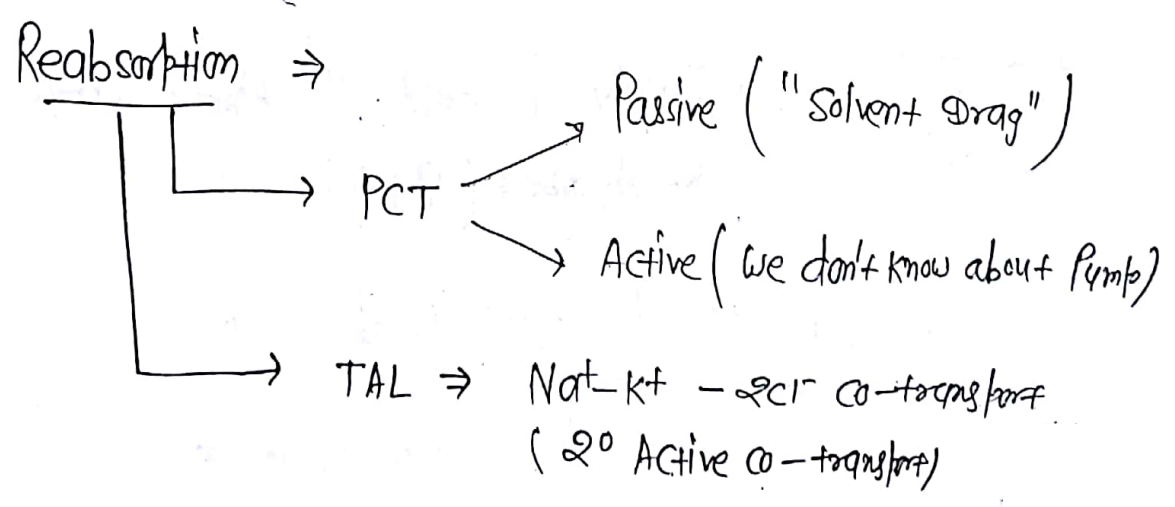 Reabsorption ⇒
Passive ("Solvent Drag")
PCT
Active (we don't know about Pump)
TAL ⇒ Na+-K+ - 2Cl- co-transport
(2° Active co-transport)